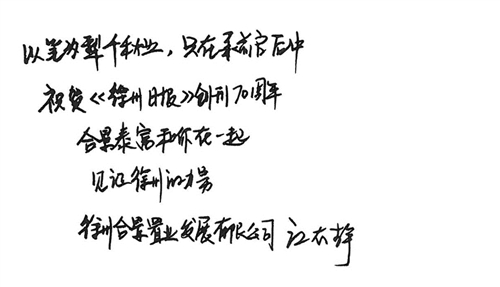 以笔为犁千秋业，只在承前启后中
祝贺《徐州日报》创刊70周年
合景泰富和你在一起
见证徐州的力量
徐州合景置业发展有限公司 江大